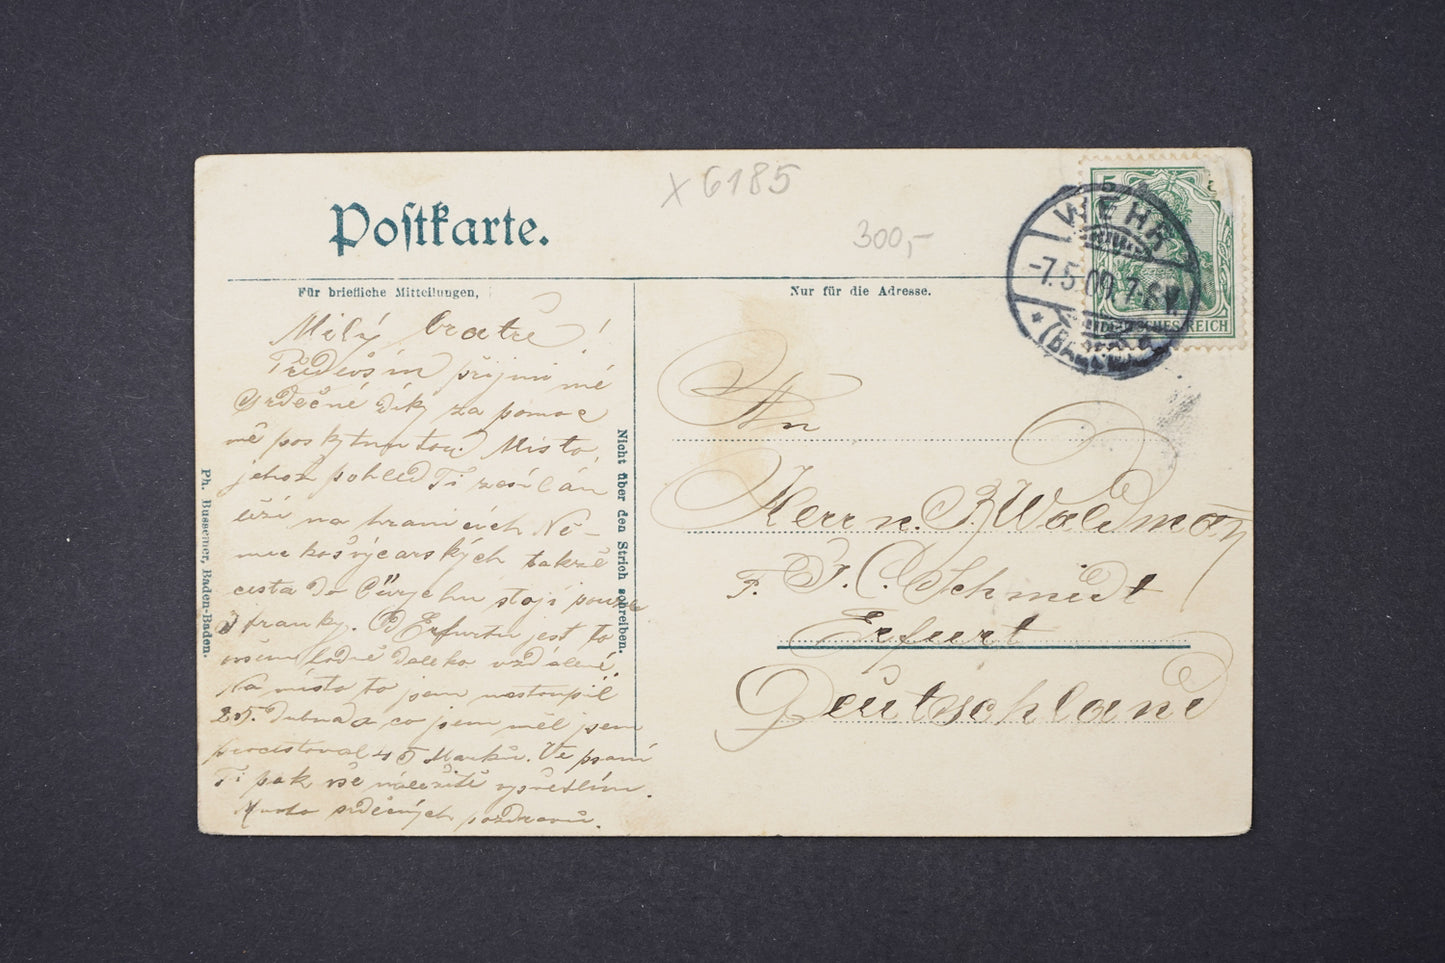 x 6185
Postkarte.
300,-
5
WEHR
-7.5.09.7-8V.
* (BADEN)
DEUTSCHES REICH
Für briefliche Mitteilungen,
Nur für die Adresse.
Milý bratře!
Předevšín přijmi mé
srdečné díky za pomoc
mě poskytnutou! Místo,
jehož pohled Ti zasílám
leží na hranicích Ně-
meckošvýcarských takže
cesta do Cürychu stojí pouze
3 franky. Od Erfurtu jest to
ovšem hodně daleko vzdálené.
Na místo to jsem nastoupil
25. dubna a co jsem měl jsem
procestoval 45 Marků. Ve psaní
Ti pak vše náležitě vysvětlím.
Mnoho srdečných pozdravů.
Nicht über den Strich schreiben.
Ph. Bussemer, Baden-Baden.
An
Herrn. J. Waldman
F. J. C. Schmidt
Erfurt
Deutschland